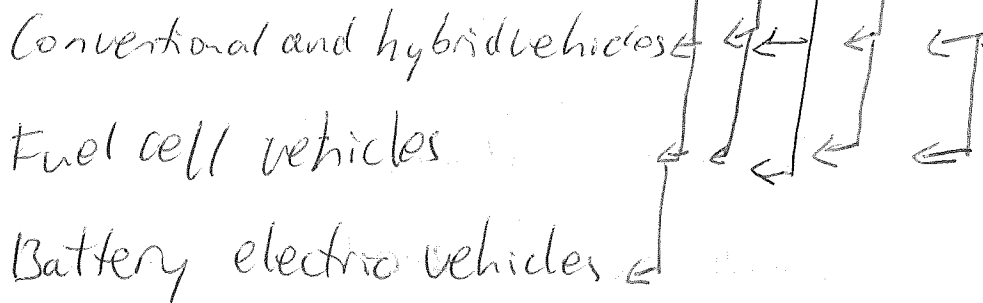 Conventional and hybrid vehicles
Fuel cell vehicles
Battery electric vehicles